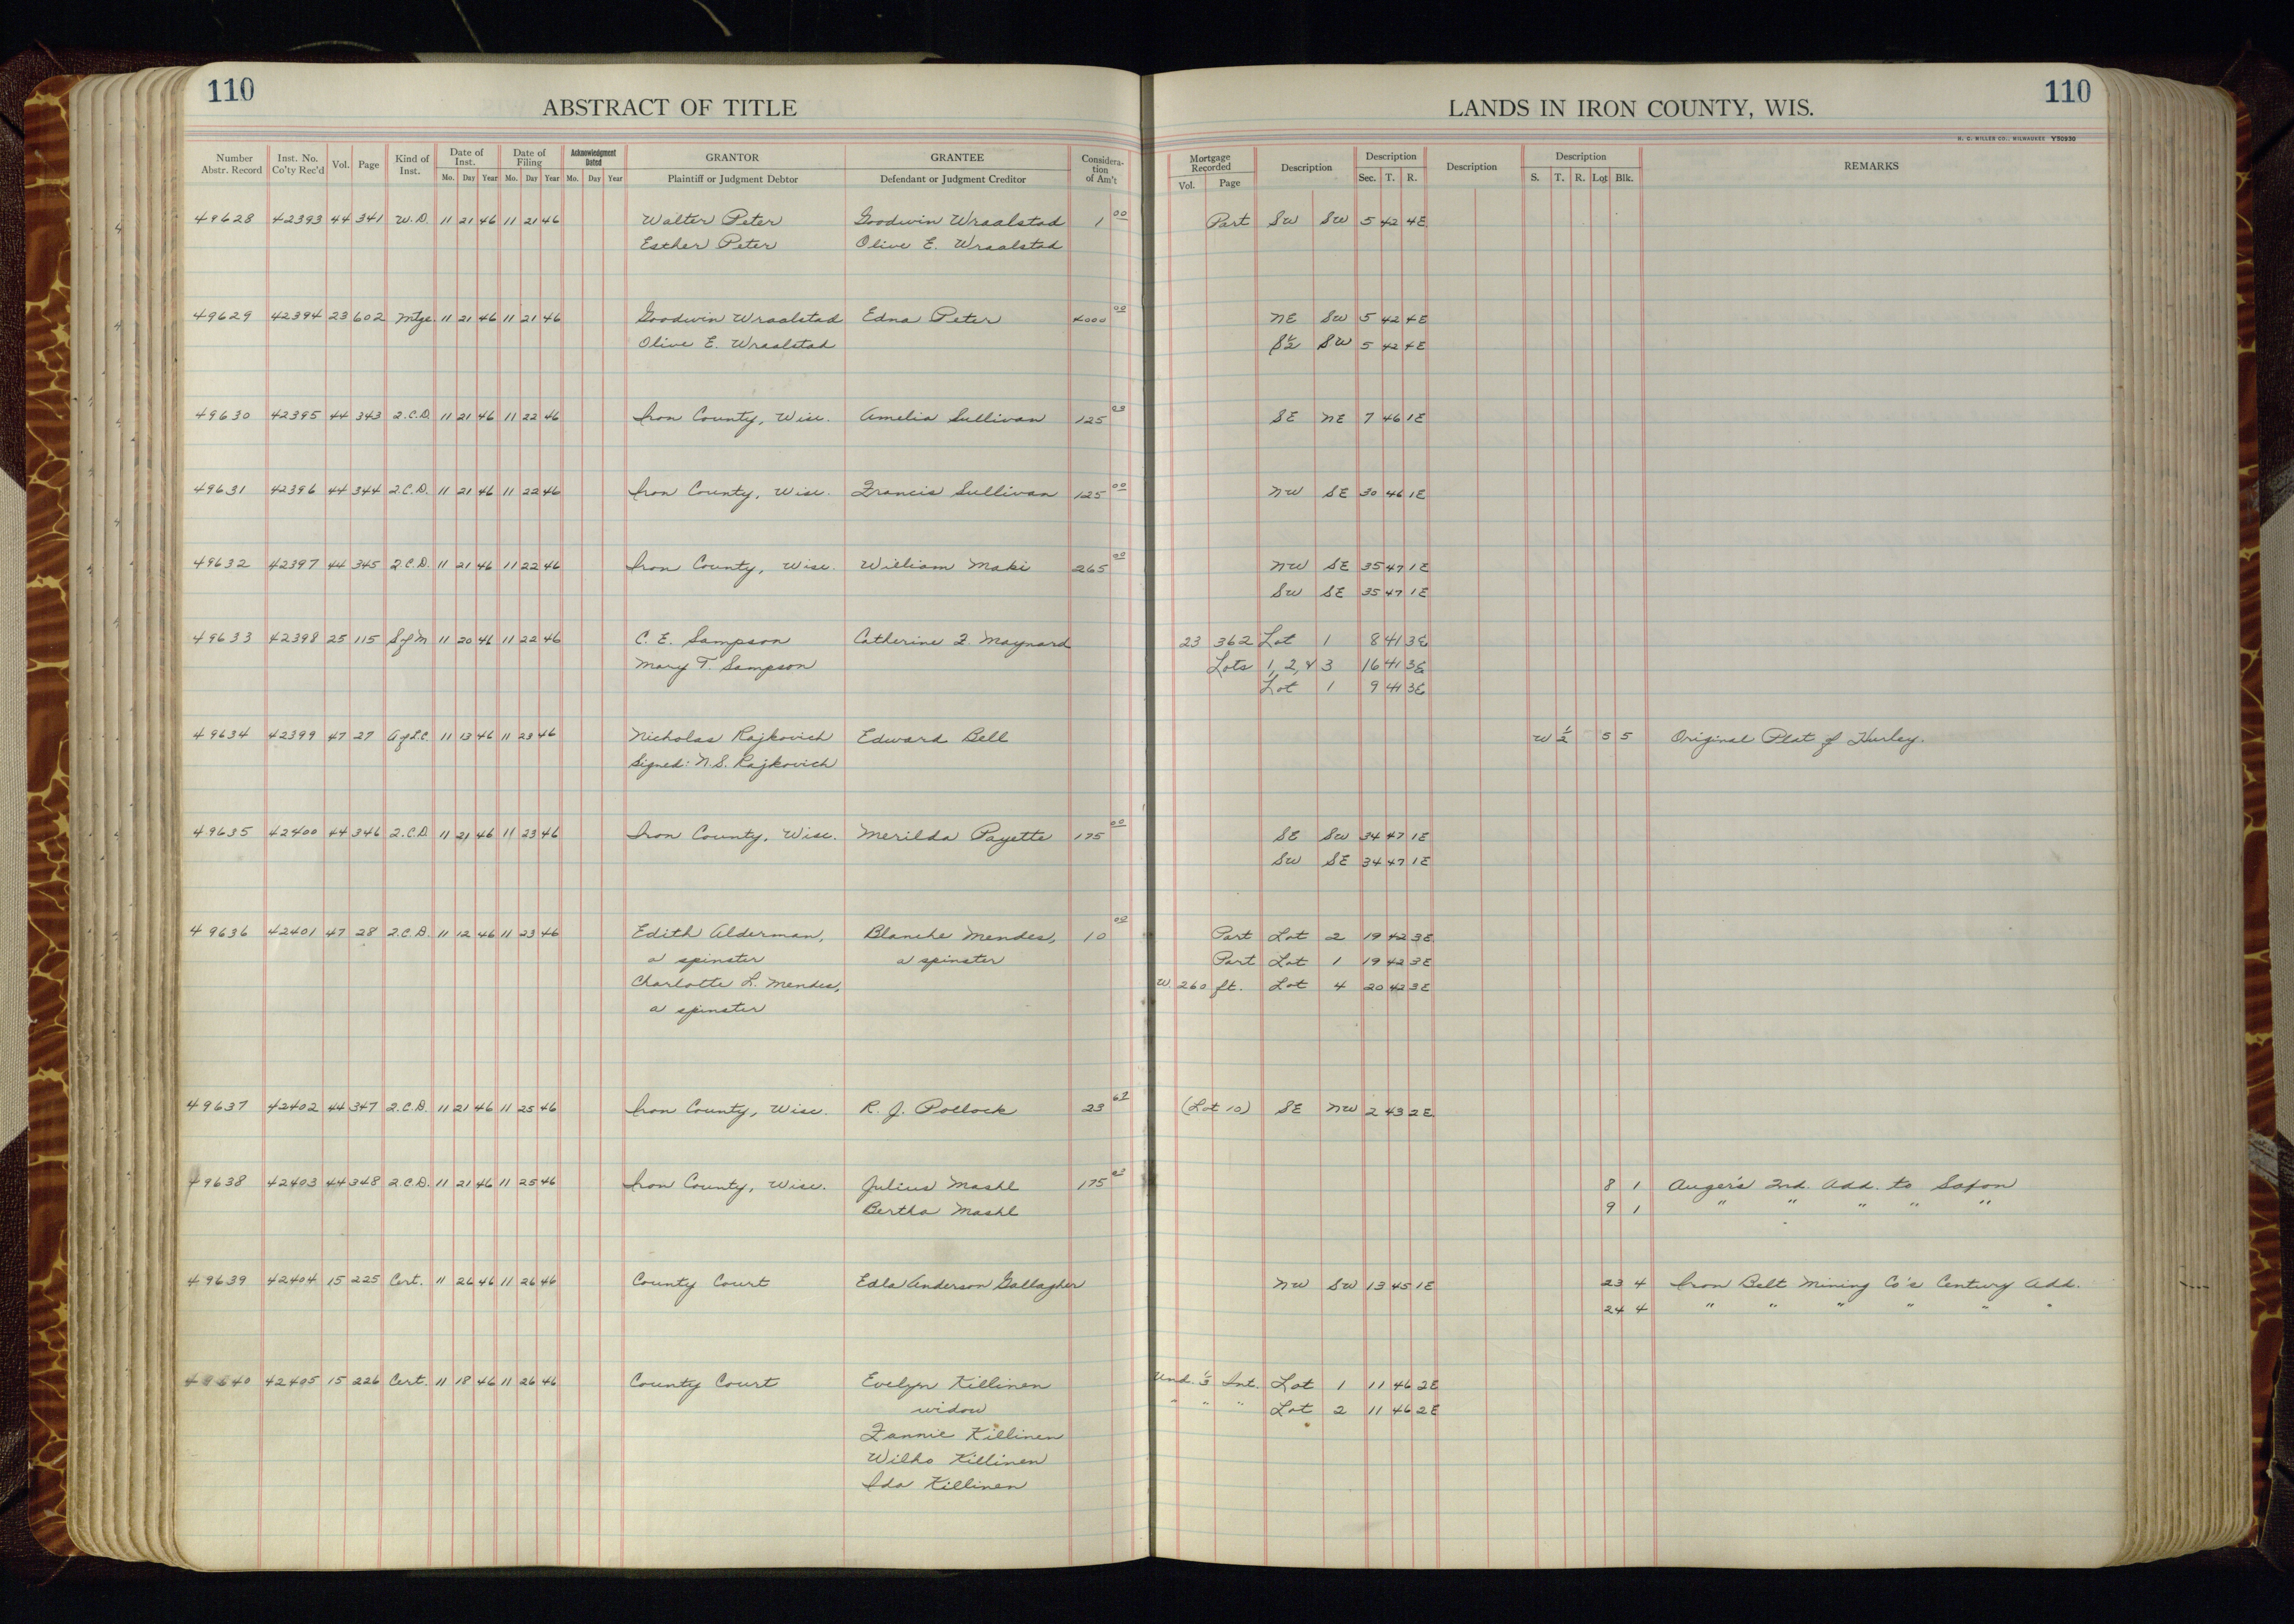 110
ABSTRACT OF TITLE
LANDS IN IRON COUNTY, WIS.
110
H. C. MILLER CO., MILWAUKEE Y50930
Number Abstr. Record Inst. No. Co'ty Rec'd Vol. Page Kind of Inst. Date of Inst. Mo. Day Year Date of Filing Mo. Day Year Acknowledgment Dated Mo. Day Year GRANTOR Plaintiff or Judgment Debtor GRANTEE Defendant or Judgment Creditor Considera-tion of Am't Mortgage Recorded Vol. Page Description Description Sec. T. R. Description Description S. T. R. Lot Blk. REMARKS
49628 42393 44 341 W.D. 11 21 46 11 21 46 Walter Peter Goodwin Wraalstad 1 00 Part SW SW 5 42 4E
Esther Peter Olive E. Wraalstad
49629 42394 23 602 Mtge. 11 21 46 11 21 46 Goodwin Wraalstad Edna Peter 4000 00 NE SW 5 42 4E
Olive E. Wraalstad S½ SW 5 42 4E
49630 42395 44 343 Q.C.D. 11 21 46 11 22 46 Iron County, Wisc. Amelia Sullivan 125 00 SE NE 7 46 1E
49631 42396 44 344 Q.C.D. 11 21 46 11 22 46 Iron County, Wisc. Francis Sullivan 125 00 NW SE 30 46 1E
49632 42397 44 345 Q.C.D. 11 21 46 11 22 46 Iron County, Wisc. William Maki 265 00 NW SE 35 47 1E
SW SE 35 47 1E
49633 42398 25 115 S of M 11 20 46 11 22 46 C. E. Sampson Catherine F. Maynard 23 362 Lot 1 8 41 3E
Mary T. Sampson Lots 1, 2, & 3 16 41 3E
Lot 1 9 41 3E
49634 42399 47 27 A of L.C. 11 13 46 11 23 46 Nicholas Rajkovich Edward Bell W ½ 5 5 Original Plat of Hurley.
Signed: N.S. Rajkovich
49635 42400 44 346 Q.C.D. 11 21 46 11 23 46 Iron County, Wisc. Merilda Payette 175 00 SE SW 34 47 1E
SW SE 34 47 1E
49636 42401 47 28 Q.C.D. 11 12 46 11 23 46 Edith Alderman, Blanche Mendes, 10 00 Part Lot 2 19 42 3E
a spinster a spinster Part Lot 1 19 42 3E
Charlotte L. Mendes, W. 260 ft. Lot 4 20 42 3E
a spinster
49637 42402 44 347 Q.C.D. 11 21 46 11 25 46 Iron County, Wisc. R. J. Pollock 23 (Lot 10) SE NW 2 43 2E
49638 42403 44 348 Q.C.D. 11 21 46 11 25 46 Iron County, Wisc. Julius Mashl 175 8 1 Auger's 2nd. Add. to Saxon
Bertha Mashl 9 1 " " " " "
49639 42404 15 225 Cert. 11 26 46 11 26 46 County Court Edla Anderson Gallagher NW SW 13 45 1E 23 4 Iron Belt Mining Co's Century Add.
24 4 " " " " " "
49640 42405 15 226 Cert. 11 18 46 11 26 46 County Court Evelyn Killinen Und. ⅓ Int. Lot 1 11 46 2E
widow " " " Lot 2 11 46 2E
Fannie Killinen
Wilho Killinen
Ida Killinen